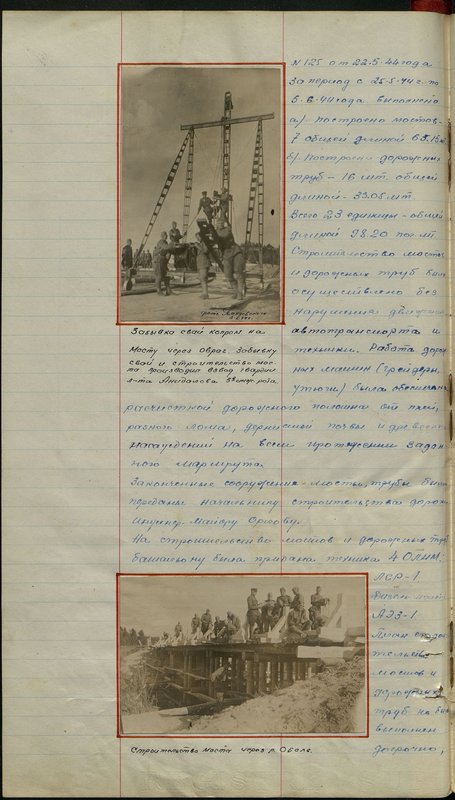 N 125 от 22.5.44 года
За период с 25.5.44 г. по
5.6.44 года выполнено
а) построено мостов-
7 общей длиной 65.15 м
б) построено дорожных
труб - 16 шт. общей
длиной - 33.05 мт.
Всего 23 единицы - общей
длиной 98.20 пог. мт.
Строительство мостов
и дорожных труб было
осуществлено без
нарушения движения
автотранспорта и
техники. Работа дорож
ных машин (грейдеры,
утюги) была обеспечена
расчисткой дорожного полотна от пней,
лома, дернистой почвы и древесных
насаждений на всем протяжении задан-
ного маршрута.
Законченные сооружения - мосты, трубы были
переданы начальнику строительства дороги
Инженер-майору
На строительство мостов и дорожных труб
батальону была придана техника 4 ОПНМ.
ЛСР-1.
АЭЗ-1
План строи
тельства
мостов и
дорожных
труб на был
выполнен
досрочно,
Забивка свай копром на
мосту через овраг. Забивку
свай и строительство мос-
та производил взвод гвардии
л-та Анидалова 3й инж. рота.
Строительство моста через р. Оболь.